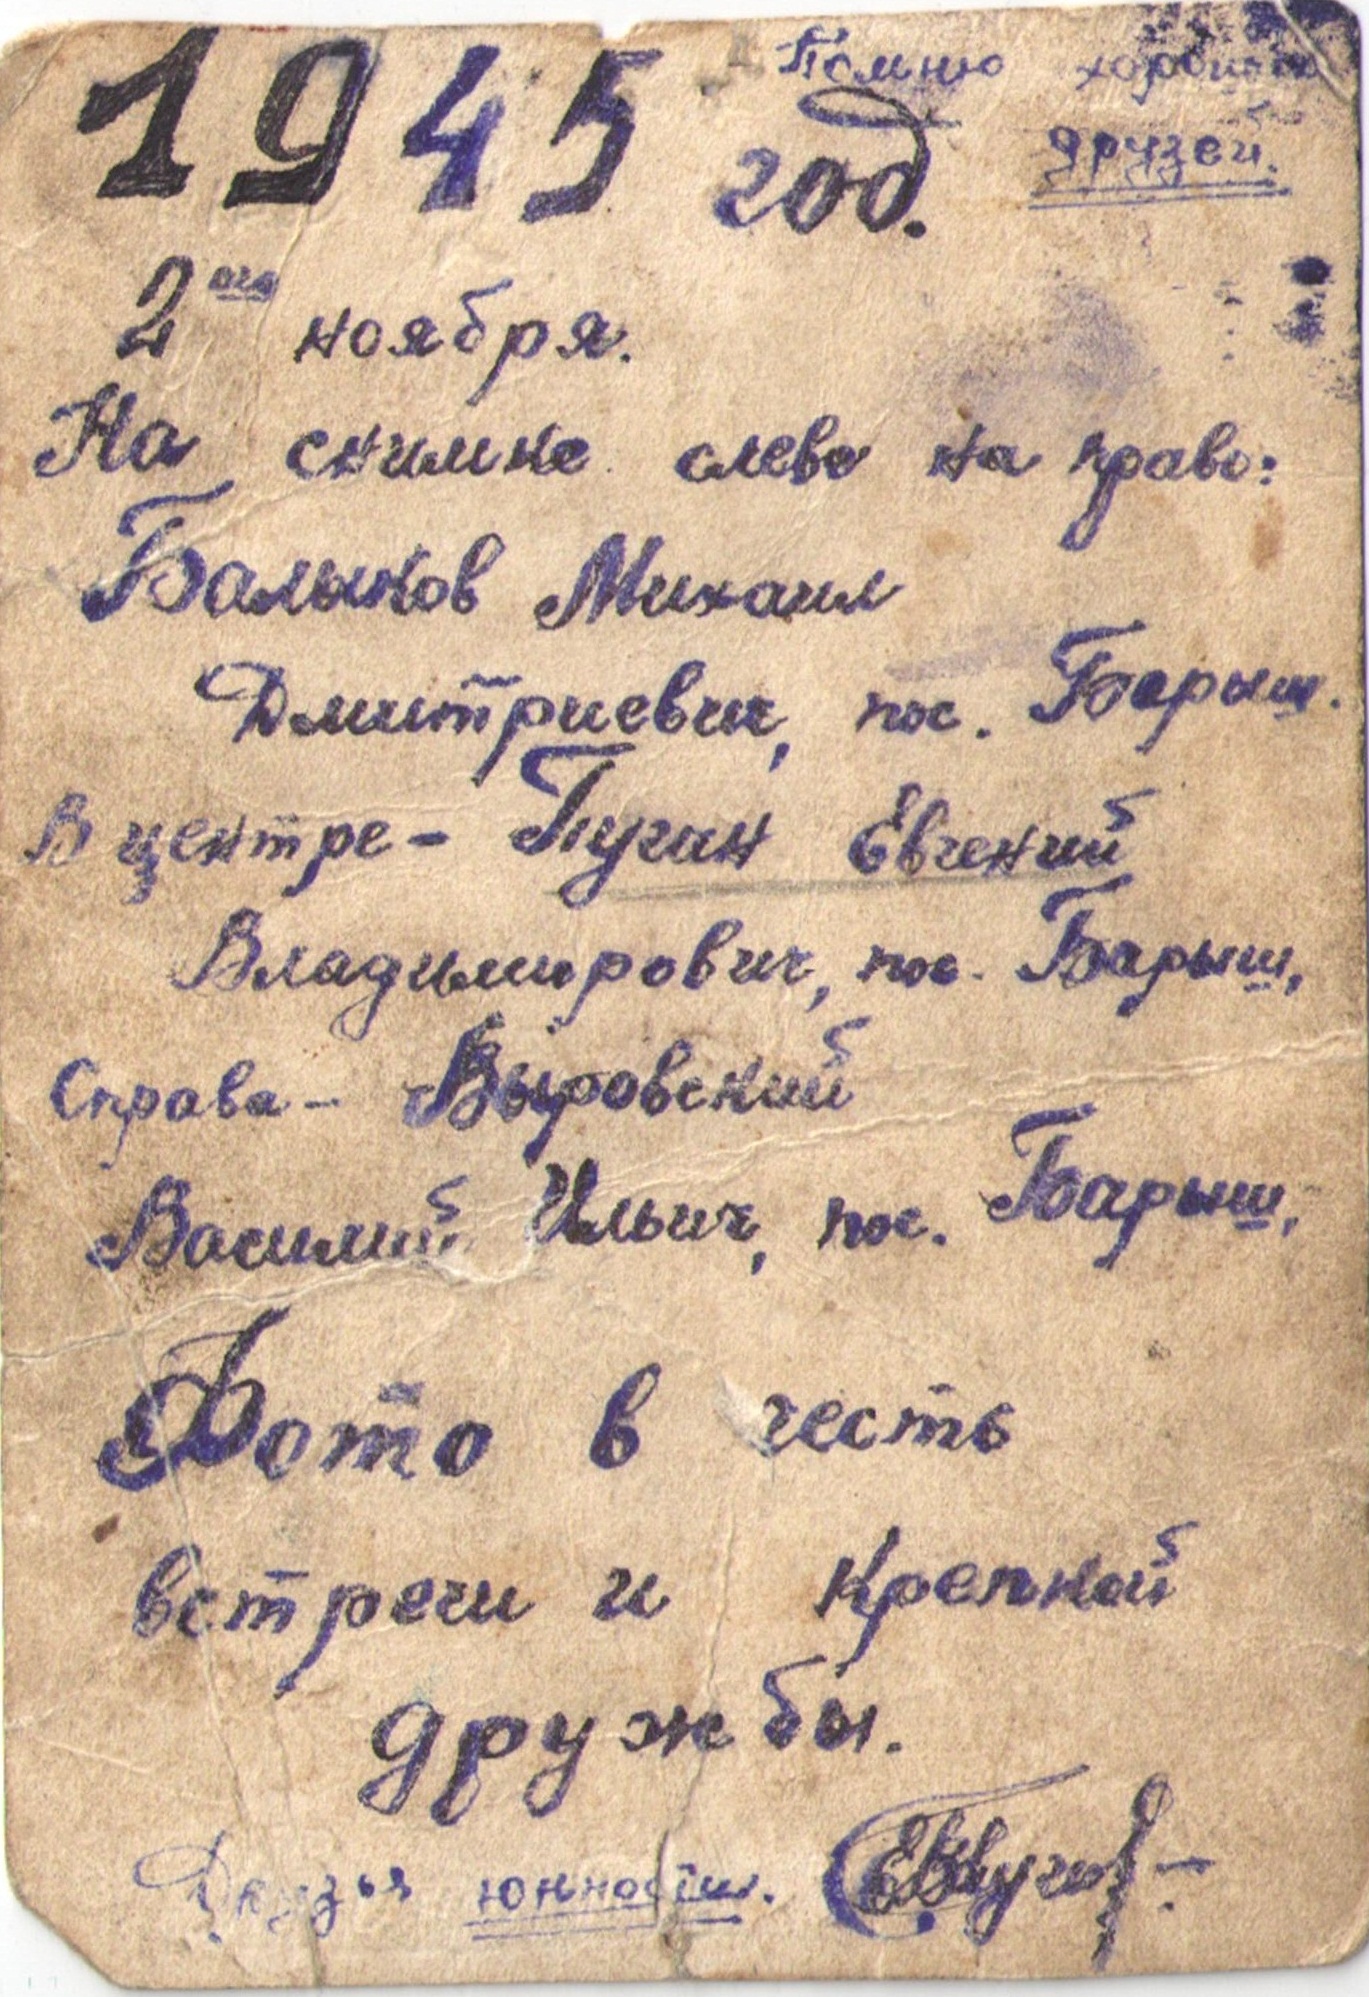 1945 год.
Помню хороших
друзей.
2ого ноября.
На снимке слево на право:
Балыков Михаил
Дмитриевич, пос. Барыш.
В центре - Пугач Евгений
Владимирович, пос. Барыш,
Справа - Выровский
Василий Ильич, пос. Барыш,
Фото в честь
встречи и крепкой
дружбы.
Друзья юнности.